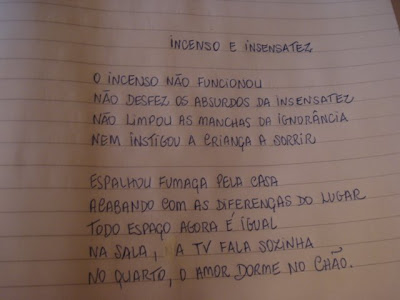 INCENSO E INSENSATEZ
O INCENSO NÃO FUNCIONOU
NÃO DESFEZ OS ABSURDOS DA INSENSATEZ
NÃO LIMPOU AS MANCHAS DA IGNORÂNCIA
NEM INSTIGOU A CRIANÇA A SORRIR
ESPALHOU FUMAÇA PELA CASA
ACABANDO COM AS DIFERENÇAS DO LUGAR
TODO ESPAÇO AGORA É IGUAL
NA SALA, A TV FALA SOZINHA
NO QUARTO, O AMOR DORME NO CHÃO.